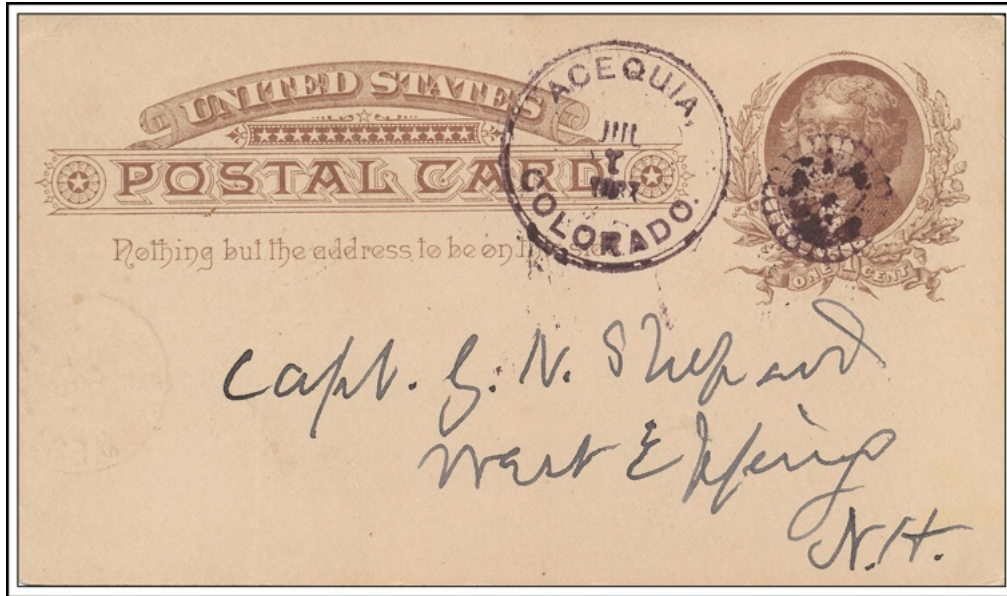 UNITED STATES
POSTAL CARD
Nothing but the address to be on this side
ACEQUIA,
JUL
1887
COLORADO.
ONE 1 CENT
Capt. G. N. Shepard
West Epping
N.H.